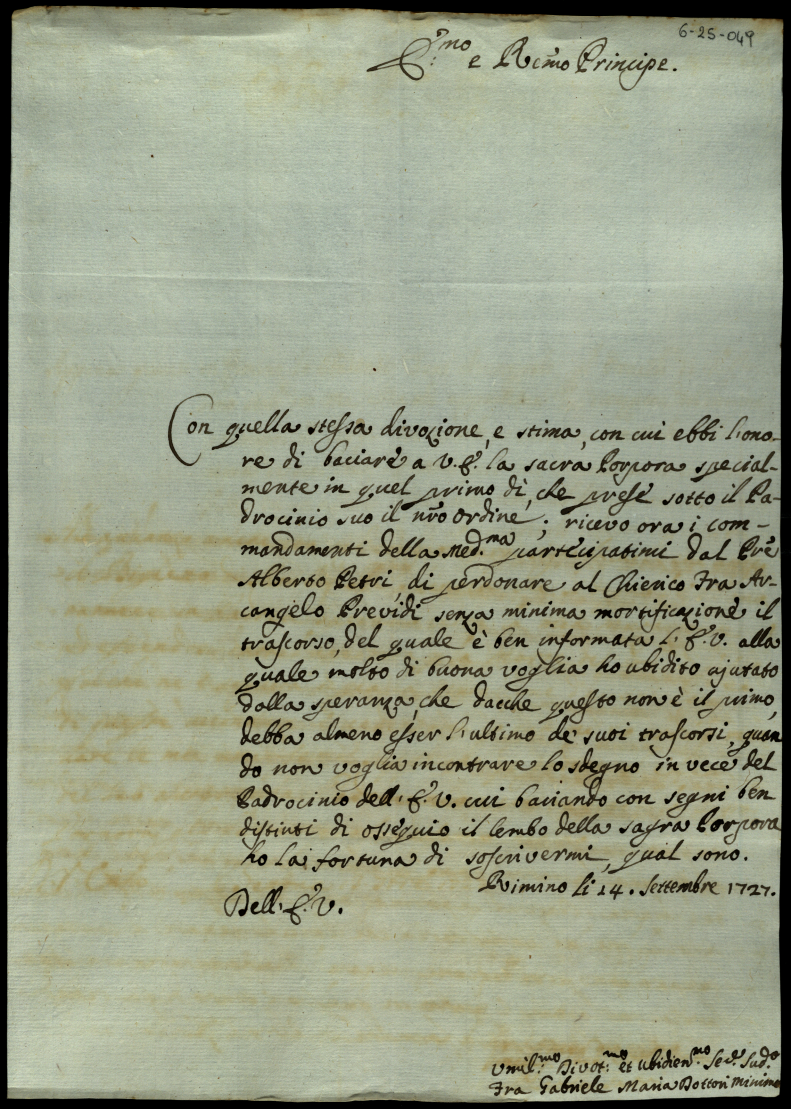 6-25-049
E:mo e Rm̃o Principe.
Con quella stessa divozione, e stima, con cui ebbi l'ono-
re di baciare a V.E. la sacra Porpora special-
mente in quel primo dì, che prese sotto il Pa-
drocinio suo il nr̃o Ordine; ricevo ora i com-
mandamenti della Med.ma partecipatimi dal Prẽ
Alberto Petri, di perdonare al Chierico Fra Ar-
cangelo Previdi senza minima mortificazione il
trascorso, del quale è ben informata l'E.V. alla
quale molto di buona voglia ho ubidito ajutato
dalla speranza, che dacche questo non è il primo,
debba almeno esser l'ultimo de suoi trascorsi, quan
do non voglia incontrare lo sdegno in vece del
Padrocinio dell'E.V. cui baciando con segni ben
distinti di ossequio il lembo della sagra Porpora
ho la fortuna di soscrivermi, qual sono.
Rimino li 14. Settembre 1727.
Dell'E.V.
Umil:mo Divot:mo et Ubidien:mo Se.e Sud.o
Fra Gabriele Maria Dottori Minimo